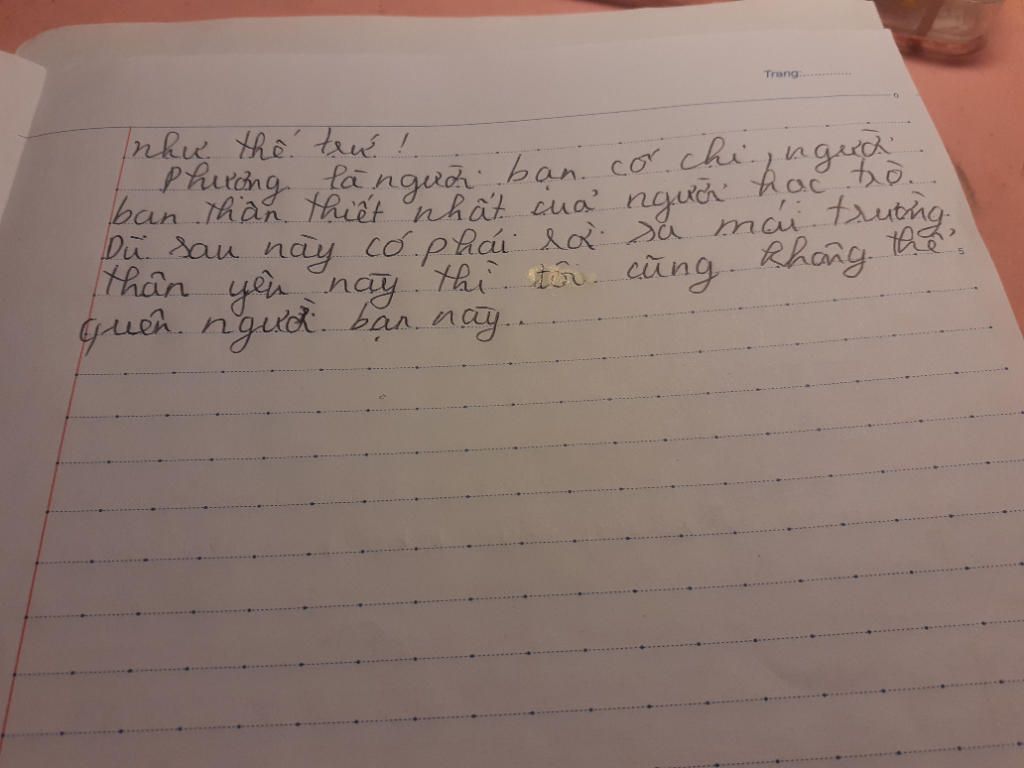 Trang:
như thế trứ!
Phương là người bạn cơ chi, người
bạn thân thiết nhất của người học trò.
Dù sau này có phải rời xa mái trường
thân yên này thì tôi cũng không thể
quên người bạn này.